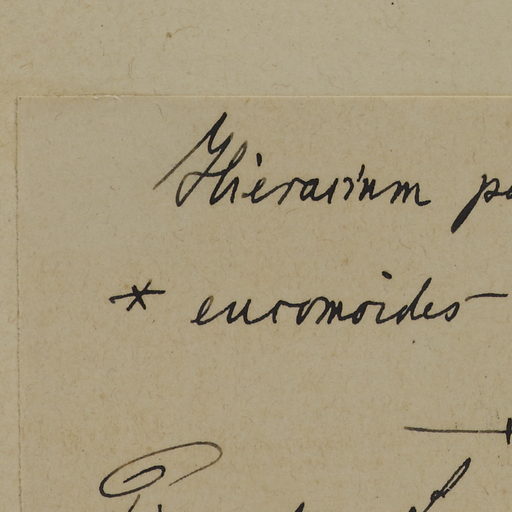 Hieracium
* eucomoides